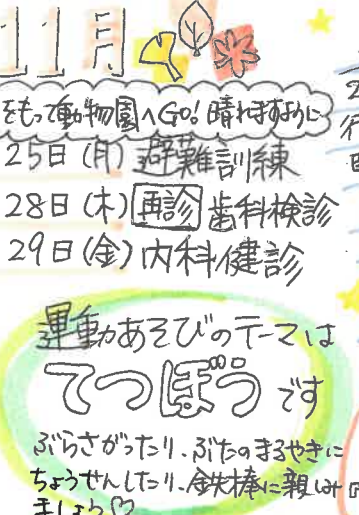 11月
をもって動物園へGO!晴れますように
25日(月)避難訓練
28日(木)再診 歯科検診
29日(金)内科健診
運動あそびのテーマは
てつぼう です
ぶらさがったり、ぶたのまるやきに
ちょうせんしたり、鉄棒に親しみ
ましょう♡